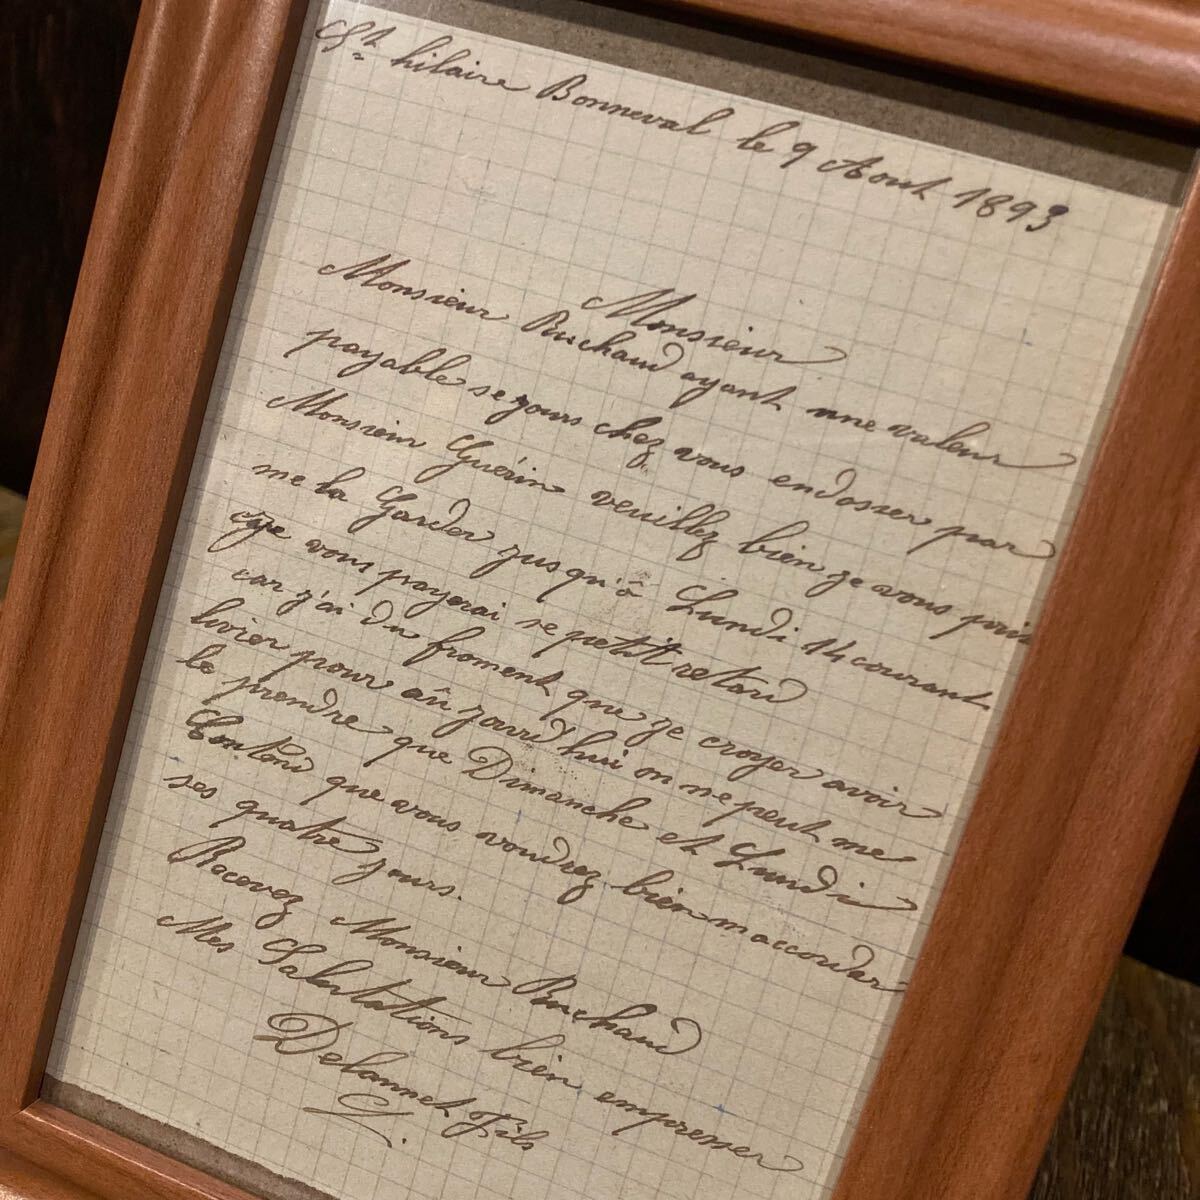 St hilaire Bonneval le 9 Aout 1893
Monsieur
Monsieur Ruchaud ayant une valeur
payable se jours chez vous endosser par
Monsieur Guérin veuillez bien je vous prie
me la Garder jusqu'à Lundi 14 courant
je vous payerai se petit retard
car j'ai du froment que je croyer avoir
livrer pour aûjourd'hui on ne peut me
le prendre que Dimanche et Lundi
que vous voudrez bien m'accorder
ses quatre jours.
Recevez Monsieur Ruchaud
Mes Salutations bien empresser
Delannet Fils